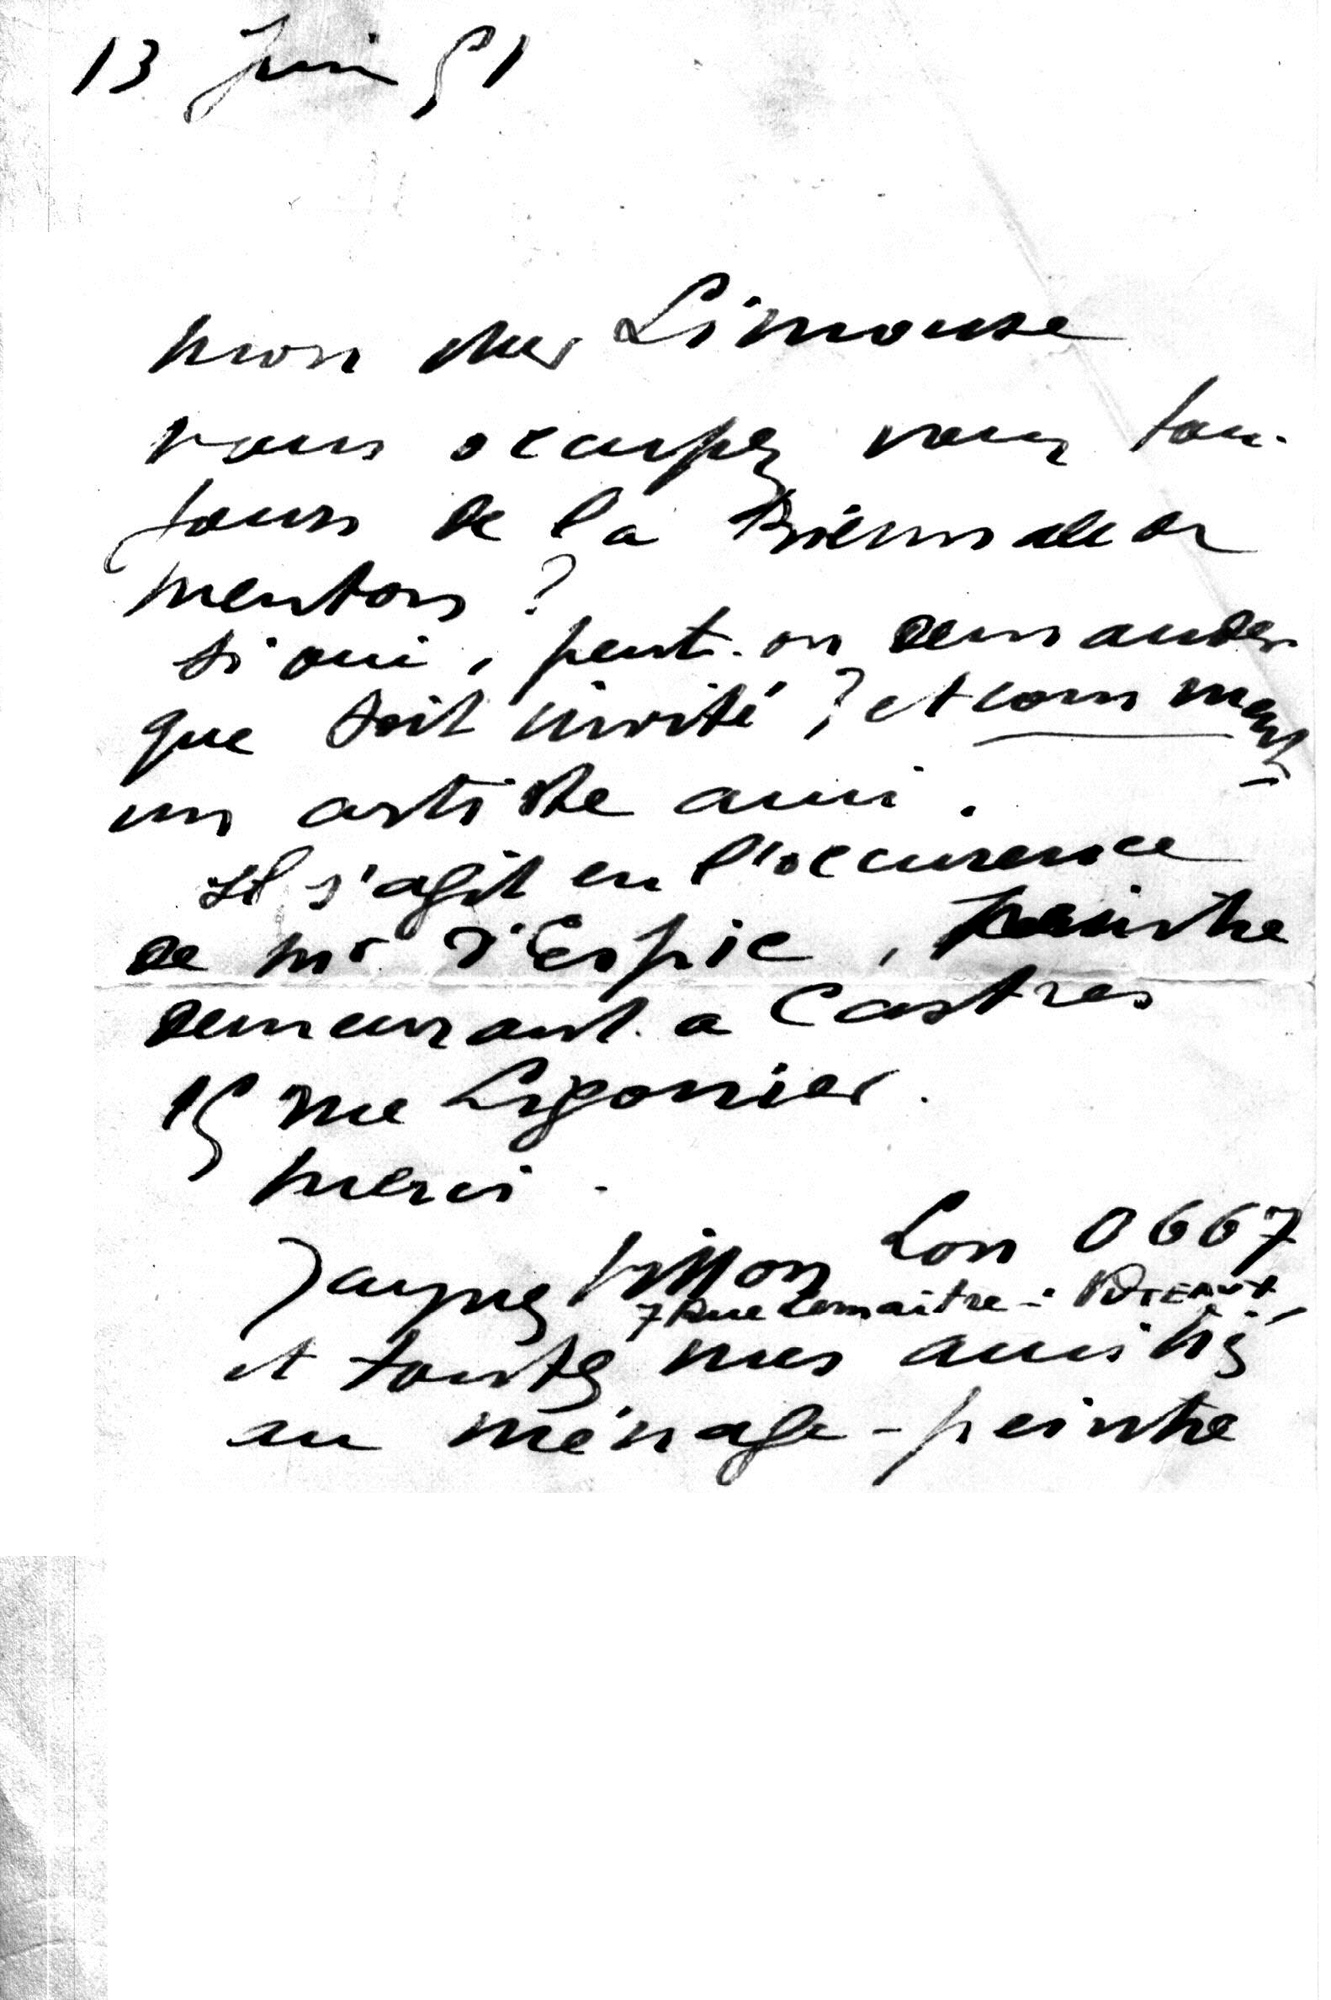 13 Juin 51
mon cher Limouse
vous occupez vous tou-
jours de la Biennale de
menton ?
si oui, peut-on demander
que soit invité ? et comment
un artiste ami.
il s'agit en l'occurence
de Mr d'Espic, peintre
demeurant a Castres
15 rue Ligonier.
merci.
Jacques Villon Lon 0667
7 Rue Lemaitre - PUTEAUX
et toutes mes amitiés
au ménage-peintre